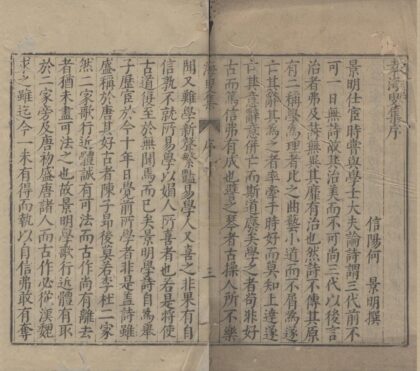 海叟集序
信陽何景明撰
景明仕宦時嘗與學士大夫論詩謂三代前不
可一日無詩故其治美而不可尚三代以後言
治者弗及詩無異其靡有治也然詩不傳其原
有二稱學為理者比之曲藝小道而不屑為遂
亡其辭其為之者率牽于時好而莫知上達遂
亡其意辭意併亡而斯道廢矣學之者苟非好
古而篤信弗有成也譬之琴者古操人所不樂
海叟集 序 三
聞又難學新聲繁豔易學人又喜之非果有自
信孰不就所易學以娛人所喜者也若是將使
古道復至於無聞焉而已矣景明學詩自為舉
子歷宦於今十年日覺前所學者非是蓋詩雖
盛稱於唐其好古者陳子昂後莫若李杜二家
然二家歌行近體誠有可法而古作尚有離去
者猶未盡可法之也故景明學歌行近體有取
於二家旁及唐初盛唐諸人而古作必從漢魏
求之雖迄今一未有得而執以自信弗敢有奪